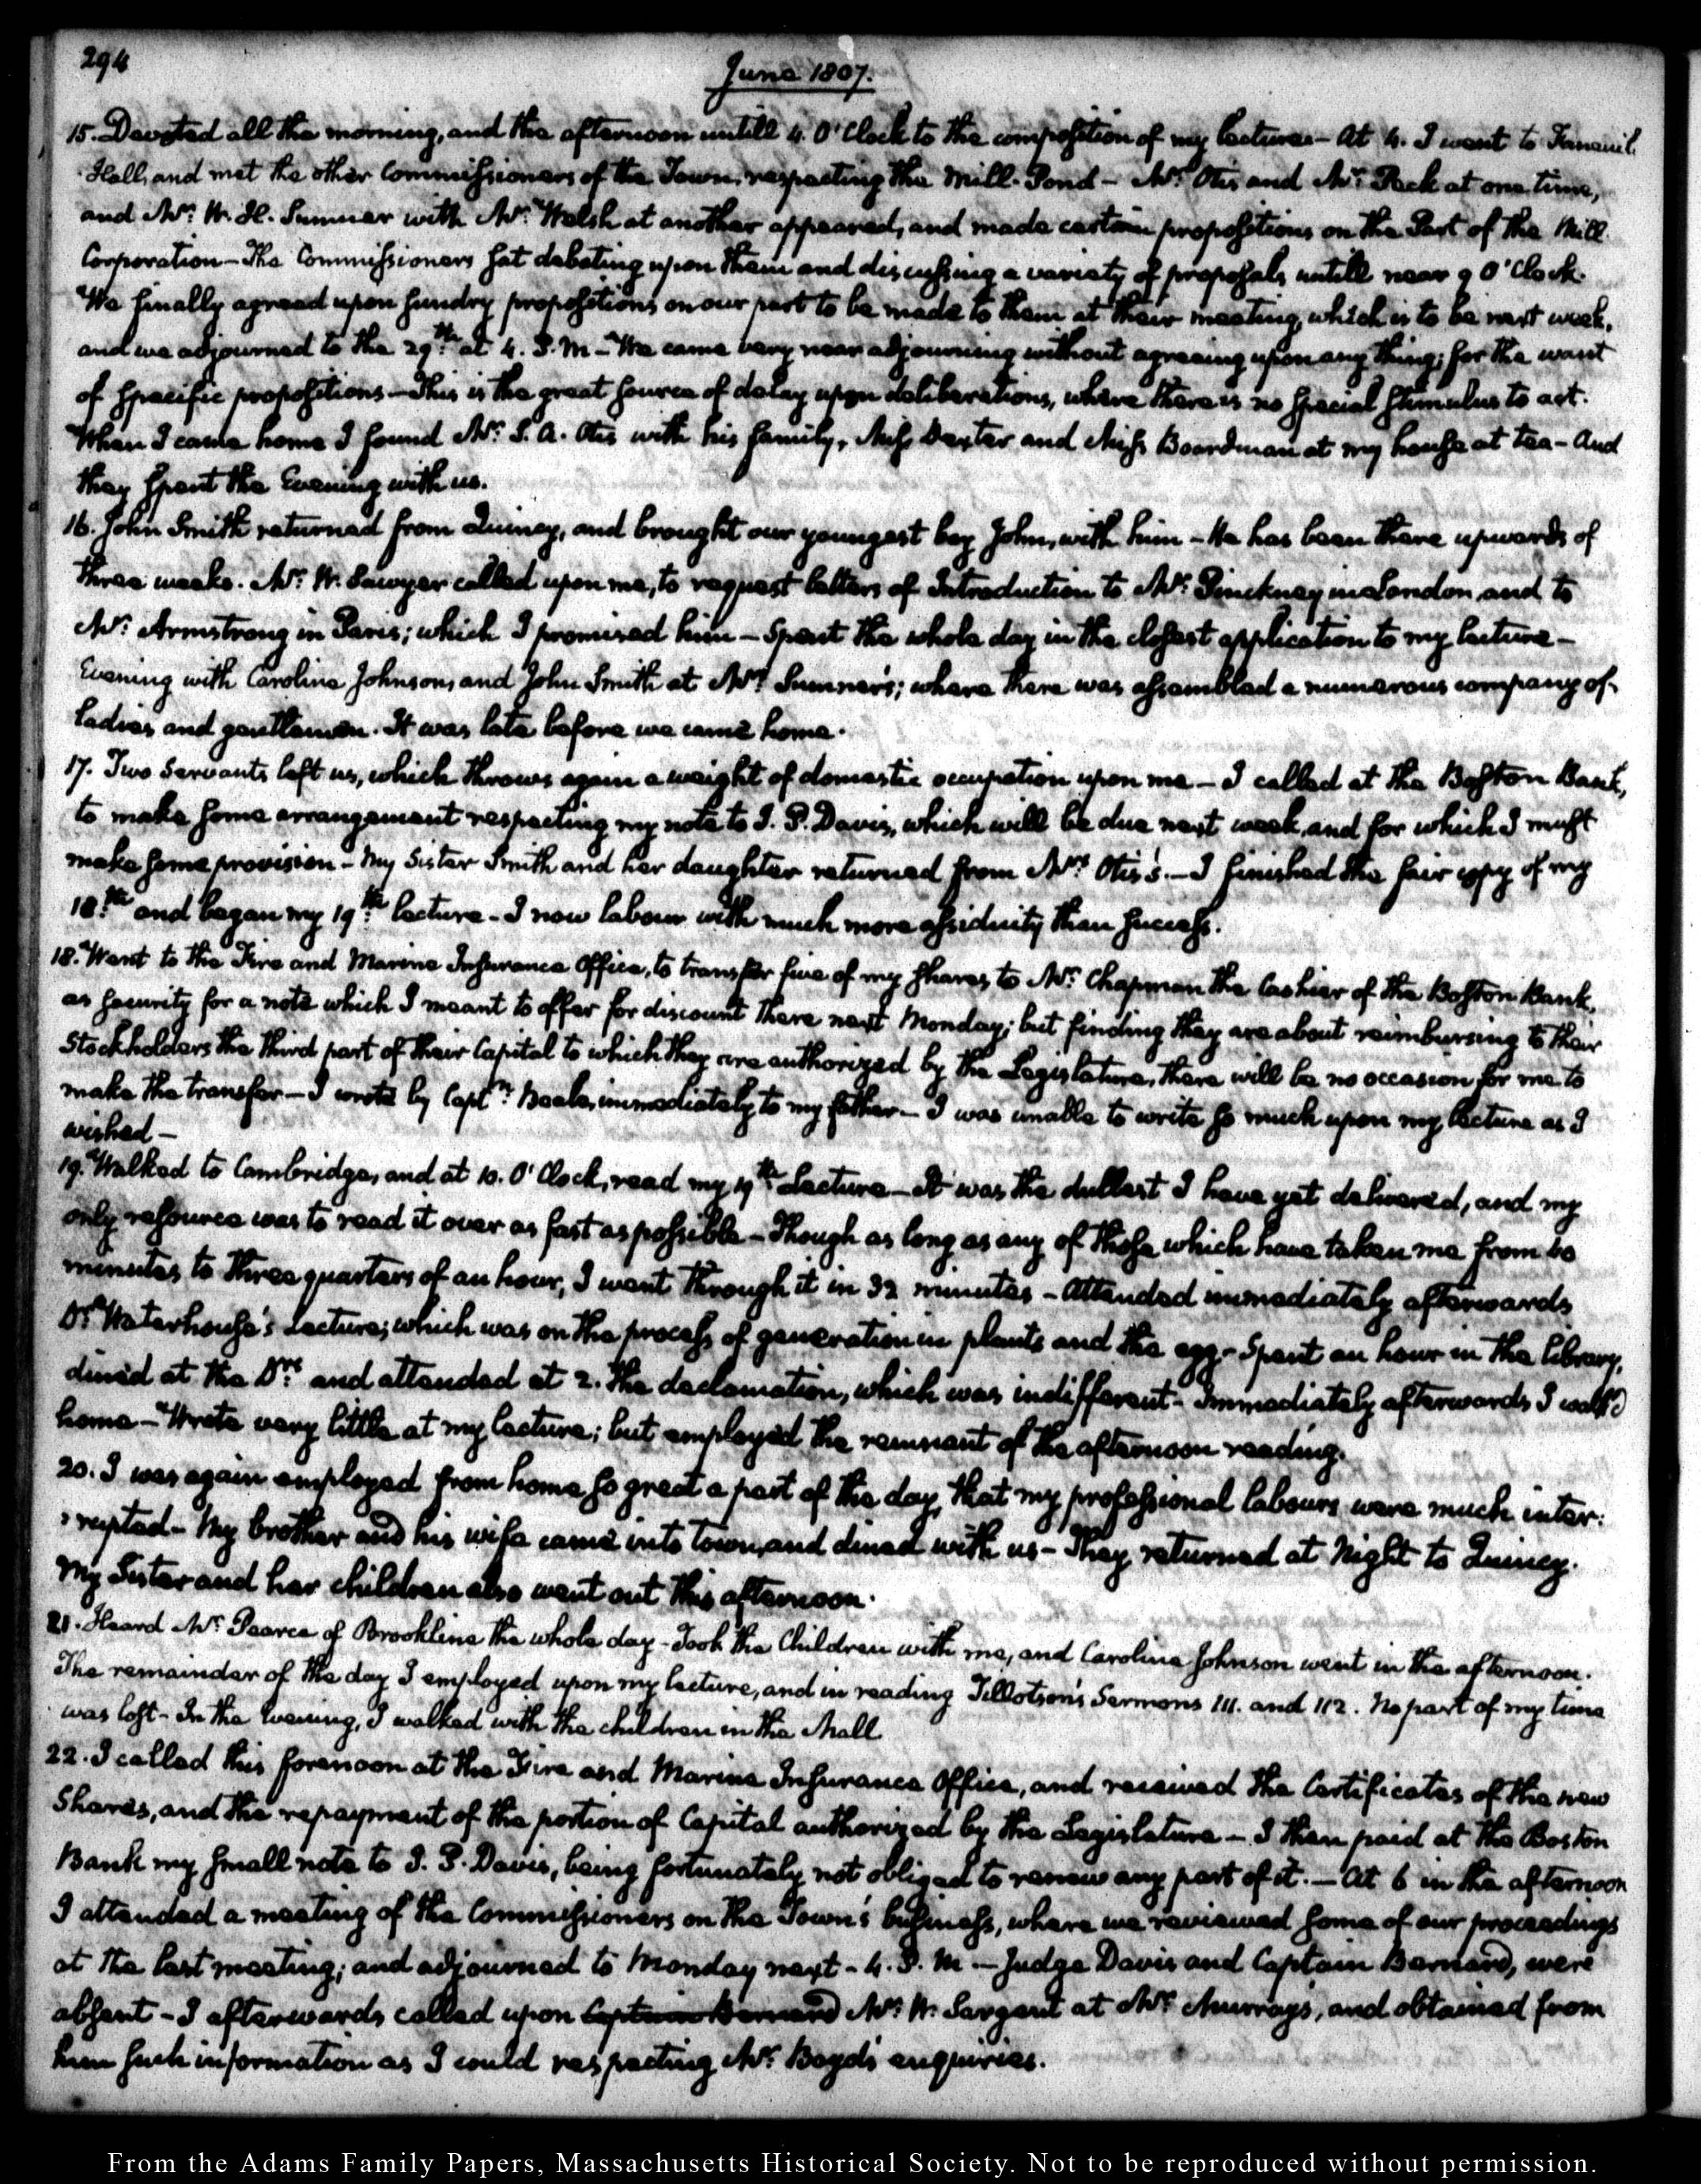 294
June 1807.
15. Devoted all the morning, and the afternoon untill 4. O'Clock to the composition of my lectures — At 4. I went to Faneuil
Hall, and met the other Commissioners of the Town, respecting the Mill-Pond — Mr. Otis and Mr. Peck at one time,
and Mr. W. H. Sumner with Mr. Welsh at another appeared, and made certain propositions on the Part of the Mill
Corporation — The Commissioners sat debating upon them and discussing a variety of proposals untill near 9 O'Clock.
We finally agreed upon sundry propositions on our part to be made to them at their meeting, which is to be next week,
and we adjourned to the 29th. at 4. P.M — We came very near adjourning without agreeing upon any thing; for the want
of specific propositions — This is the great source of delay upon deliberations, where there is no special stimulus to act.
When I came home I found Mr. S. A. Otis with his family, Miss Dexter and Miss Boardman at my house at tea — And
they spent the Evening with us.
16. John Smith returned from Quincy, and brought our youngest boy John, with him — He has been there upwards of
three weeks. Mr. W. Sawyer called upon me, to request letters of Introduction to Mr. Pinckney in London, and to
Mr. Armstrong in Paris; which I promised him — Spent the whole day in the closest application to my lecture —
Evening with Caroline Johnson, and John Smith at Mrs. Sumner's; where there was assembled a numerous company of
ladies and gentlemen. It was late before we came home.
17. Two Servants left us, which throws again a weight of domestic occupation upon me — I called at the Boston Bank,
to make some arrangement respecting my note to I. P. Davis, which will be due next week, and for which I must
make some provision — My Sister Smith and her daughter returned from Mrs. Otis's. — I finished the fair copy of my
18th. and began my 19th. lecture — I now labour with much more assiduity than success.
18. Went to the Fire and Marine Insurance Office, to transfer five of my shares to Mr. Chapman the Cashier of the Boston Bank,
as security for a note which I meant to offer for discount there next Monday; but finding they are about reimbursing to their
Stockholders the third part of their Capital to which they are authorized by the Legislature, there will be no occasion for me to
make the transfer — I wrote by Captn. Beale, immediately to my father — I was unable to write so much upon my lecture as I
wished —
19. Walked to Cambridge, and at 10. O'Clock, read my 19th. Lecture — It was the dullest I have yet delivered, and my
only resource was to read it over as fast as possible — Though as long as any of those which have taken me from 40
minutes to three quarters of an hour, I went through it in 32 minutes — Attended immediately afterwards
Dr. Waterhouse's Lecture; which was on the process of generation in plants and the egg — Spent an hour in the library,
dined at the Drs. and attended at 2. the declamation, which was indifferent — Immediately afterwards I walk'd
home — Wrote very little at my lecture; but employed the remnant of the afternoon reading.
20. I was again employed from home so great a part of the day, that my professional labours were much inter:
:rupted — My brother and his wife came into town, and dined with us — They returned at Night to Quincy.
My Sister and her children also went out this afternoon.
21. Heard Mr. Pearce of Brookline the whole day — Took the Children with me, and Caroline Johnson went in the afternoon.
The remainder of the day I employed upon my lecture, and in reading Tillotson's Sermons 111. and 112. No part of my time
was lost — In the Evening, I walked with the children in the Mall
22. I called this forenoon at the Fire and Marine Insurance Office, and received the Certificates of the new
Shares, and the repayment of the portion of Capital authorized by the Legislature — I then paid at the Boston
Bank my small note to I. P. Davis, being fortunately not obliged to renew any part of it. — At 6 in the afternoon
I attended a meeting of the Commissioners on the Town's business, where we reviewed some of our proceedings
at the last meeting; and adjourned to Monday next — 4. P. M — Judge Davis and Captain Barnard, were
absent — I afterwards called upon Captain Barnard Mr. W. Sargent at Mr. Murray's, and obtained from
him such information as I could respecting Mr. Boyd's enquiries.
From the Adams Family Papers, Massachusetts Historical Society. Not to be reproduced without permission.